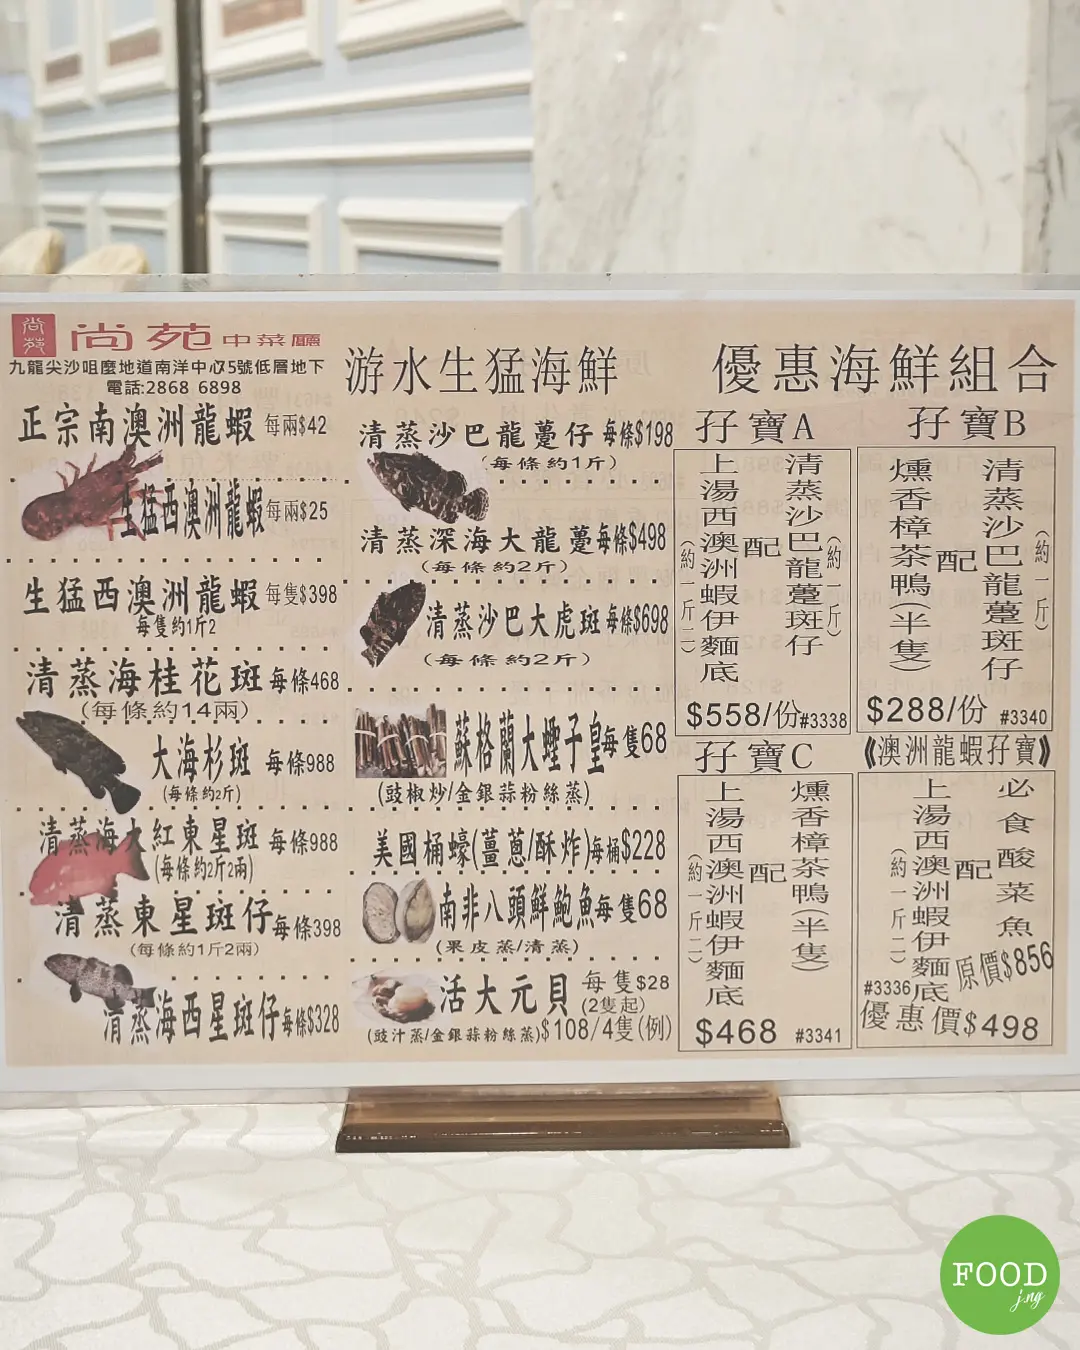 尚苑
尚苑中菜廳
九龍尖沙咀麼地道南洋中心5號低層地下
電話:2868 6898
正宗南澳洲龍蝦 每兩$42
生猛西澳洲龍蝦 每兩$25
生猛西澳洲龍蝦 每隻$398
每隻約1斤2
清蒸海桂花斑 每條468
(每條約14兩)
大海杉斑 每條988
(每條約2斤)
清蒸海大紅東星斑 每條988
(每條約2斤2兩)
清蒸東星斑仔 每條398
(每條約1斤2兩)
清蒸海西星斑仔 每條$328
游水生猛海鮮
清蒸沙巴龍躉仔 每條$198
(每條約1斤)
清蒸深海大龍躉 每條$498
(每條約2斤)
清蒸沙巴大虎斑 每條$698
(每條約2斤)
蘇格蘭大蟶子皇 每隻68
(豉椒炒/金銀蒜粉絲蒸)
美國桶蠔(薑蔥/酥炸)每桶$228
南非八頭鮮鮑魚 每隻68
(果皮蒸/清蒸)
活大元貝 每隻$28
(2隻起)
(豉汁蒸/金銀蒜粉絲蒸)$108/4隻(例)
優惠海鮮組合
孖寶A
清蒸沙巴龍躉斑仔
(約一斤)
配
上湯西澳洲龍蝦伊麵底
(約一斤二)
$558/份 #3338
孖寶B
清蒸沙巴龍躉斑仔
(約一斤)
配
燻香樟茶鴨(半隻)
$288/份 #3340
孖寶C
燻香樟茶鴨(半隻)
配
上湯西澳洲蝦伊麵底
(約一斤二)
$468 #3341
《澳洲龍蝦孖寶》
必食酸菜魚
配
上湯西澳洲蝦伊麵底
(約一斤二)
原價$856
#3336
優惠價$498
FOOD
j.ng